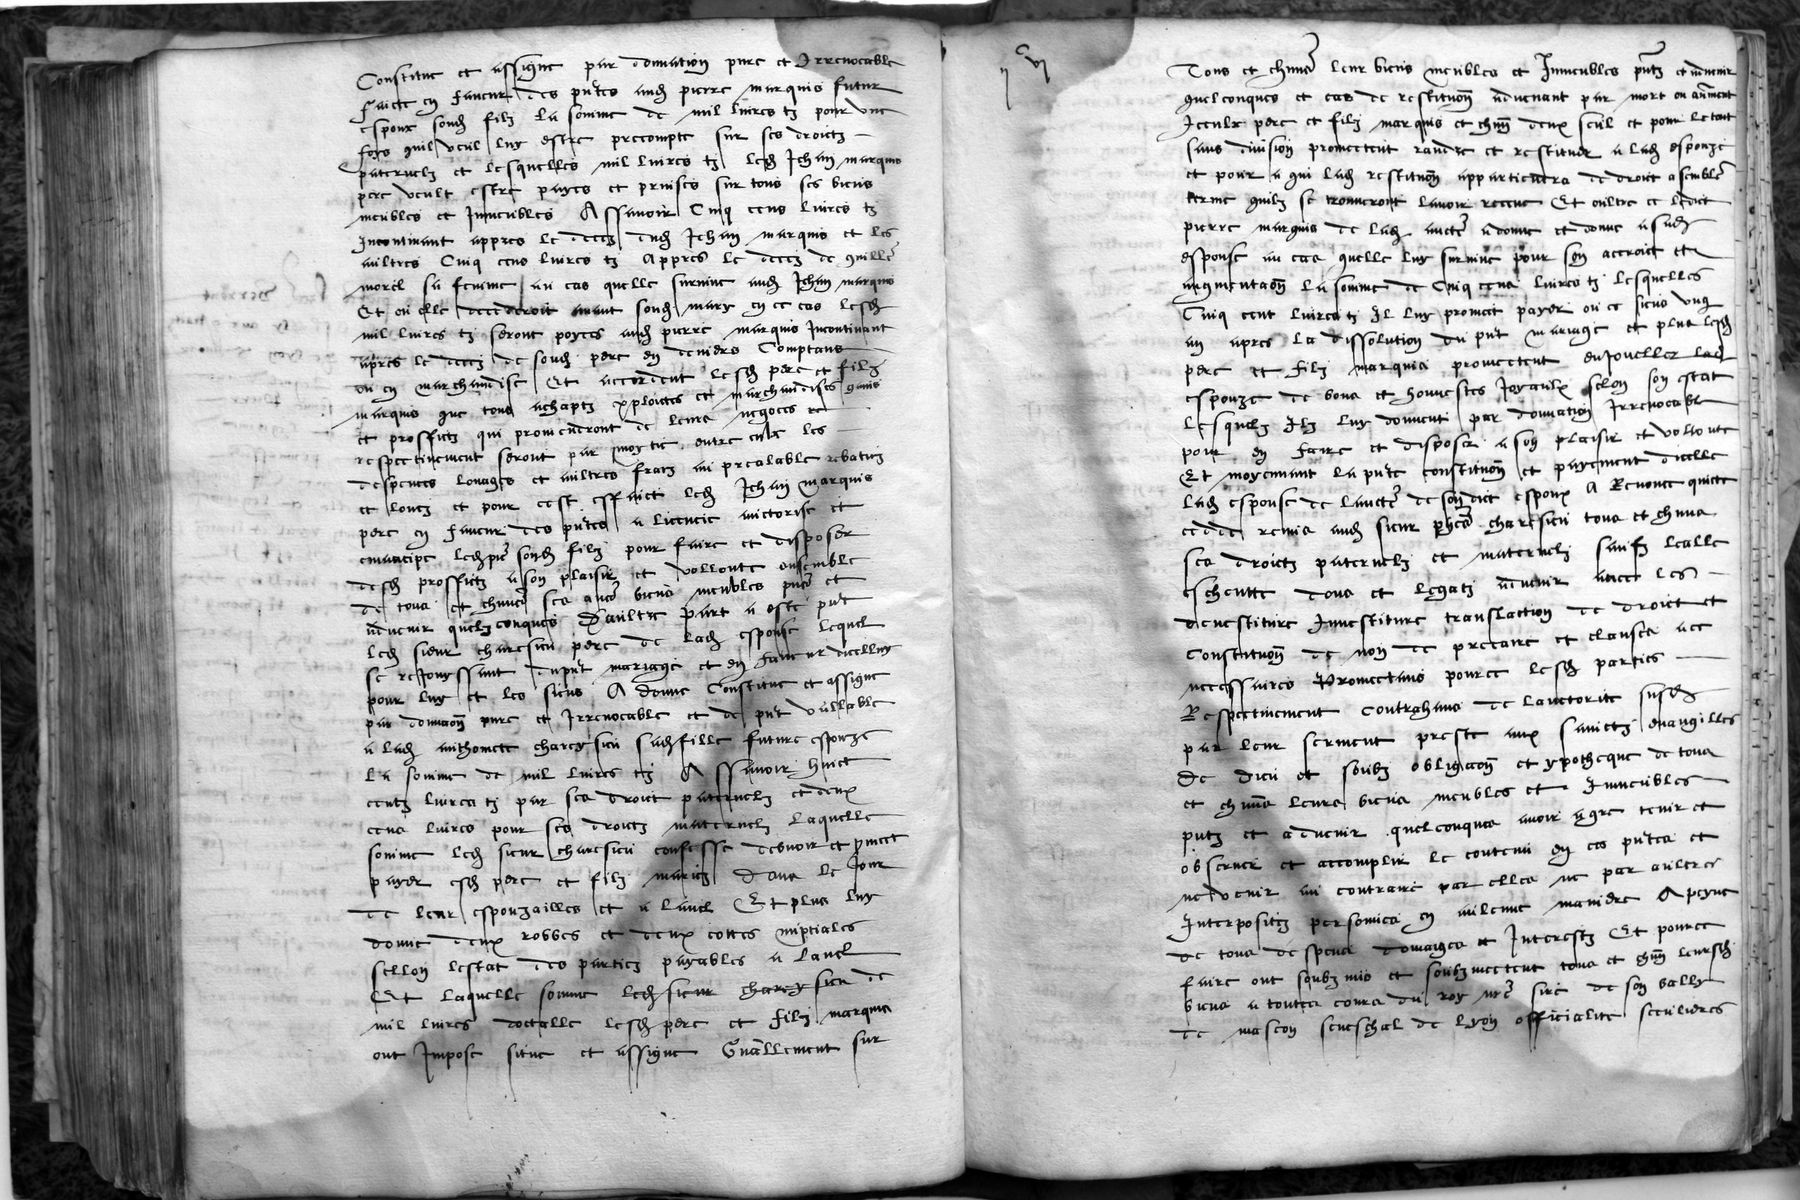 Constitue et assigne par donnation pure et Irrevocable
faicte en faveur des pntes aud pierre marquis futur
espoux sond filz la somme de mil livres tz pour une
foys quil veul luy estre precompte sur ses droictz
paternelz et lesquelles mil livres tz led Jehan marquis
pere veult estre payes et prinses sur tous ses biens
meubles et Inmeubles Assavoir Cinq cens livres tz
Incontinant appres le deces dud Jehan marquis et les
aultres Cinq cens livres tz Appres le deces de
morel sa femme au cas quelle survive aud Jehan marquis
Et ou elle decederoit avant sond mary en ce cas lesd
mil livres tz seront poyees aud pierre marquis Incontinant
apres le deces de soud pere en deniers Comptans
ou en marchandise Et accordent lesd pere et filz
marquis que tous achaptz exploictes et marchandises gains
et proffitz qui proviendront de leurs negoces
respectivement seront par moytie entre eulx les
despences louages et aultres fraiz au prealable rebatuz
et pour cest effaict led Jehan marquis
pere en faveur des pntes a licencie auctorise et
emancipe led pre sond filz pour faire et disposer
desd proffitz a son plaisir et vollonte ensemble
de tous et chuns ses aues biens meubles pns et
advenir quelzconques Daultre part a este pnt
led sieur charesieu pere de lad espouse lequel
se rejouyssant dupnt mariage et en faveur dicelluy
pour luy et les siens A donne Constitue et assigne
par donnaon pure et Irrevocable et de pnt vallable
a lad anthomete charesieu sad fille future espouze
la somme de mil livres tz Assavoir huict
centz livres tz par ses droit paternelz et deux
cens livres pour ses droictz maternelz laquelle
somme led sieur charesieu confesse debvoir et promect
payer esd pere et filz mariez Dans le Jour
de leur espouzailles et a lavel Et plus luy
donne deux robbes et deux cottes nuptiales
sellon lestat des parties payables a lavel
Et laquelle somme led sieur charesieu de
mil livres doctalle lesd pere et filz marquis
ont Impose situe et assigne Gnallement sur
Tous et chuns leur biens meubles et Inmeubles pntz et advenir
quelconques et cas de restituon advenant par mort ou aultrement
Iceulx pere et filz marquis et chun deux seul et pour le tout
sans division promectent randre et restituer a lad espouze
et pour a qui lad restituon appartiendra de droict a semblable
terme quilz se trouveront lavoir receue Et oultre ce ledict
pierre marquis de lad aucte a donne et donne a sad
espouse au cas quelle luy survive pour son accroict et
augmentaon la somme de Cinq cens livres tz lesquelles
Cinq cent livres tz Il luy promect payer ou es siens ung
an apres la dissolution du pnt mariage et plus lesd
pere et filz marquis promectent enJoueller lad
espouze de bons et honnestes Joyaulx selon son estat
lesquelz Ilz luy donnent par donnation Irrevocable
pour en faire et disposer a son plaisir et vollonte
Et moyennant la pnte constituon et payement dicelle
lad espouse de laucte de sondict espoux A Renonce quicte
cedde remis aud sieur charesieu tous et chuns
ses droictz paternelz et maternelz saufz lealle
escheutte dons et legatz advenir avec les
devestiture Investiture translaction de droict et
Constituon de non de precaire et clauses ace
necessaires Promectans pource lesd parties
Respectivement Contrahans de lauctorite susd
par leur serment preste aux sainctz evangilles
De dieu et soubz obligaon et ypotheque de tous
et chuns leurs biens meubles et Inmeubles
pntz et advenir quelconques avoir agre tenir et
observer et accomplir le contenu en ces pntes et
ne venir au contraire par elles ne par aultres
Interpositz personnes en aulcune maniere A peyne
de tous despens domaiges et Interestz Et pource
faire ont soubzmis et soubzmectent tous et chun leursd
biens a toutes cours du roy nre sire de son bally
de mascon seneschal de lyon officialite seculieres